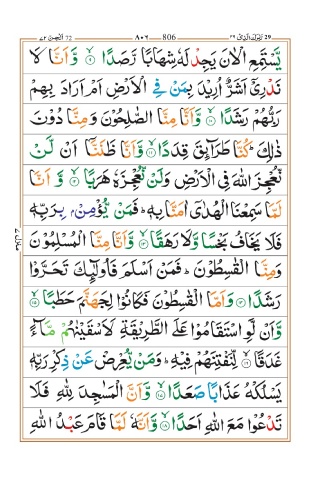 تبٰرك الذي ٢٩ 29 806 ٨٠٦ الجن ٧٢ 72
يَّسْتَمِعِ الْاٰنَ يَجِدْ لَهٗ شِهَابًا رَّصَدًا ۙ﴿۹﴾ وَّ اَنَّا لَا
نَدْرِیْۤ اَشَرٌّ اُرِیْدَ بِمَنْ فِی الْاَرْضِ اَمْ اَرَادَ بِهِمْ
رَبُّهُمْ رَشَدًا ۙ﴿۱۰﴾ وَّ اَنَّا مِنَّا الصّٰلِحُوْنَ وَ مِنَّا دُوْنَ
ذٰلِكَ ؕ كُنَّا طَرَآىِٕقَ قِدَدًا ۙ﴿۱۱﴾ وَّ اَنَّا ظَنَنَّاۤ اَنْ لَّنْ
نُّعْجِزَ اللّٰهَ فِی الْاَرْضِ وَ لَنْ نُّعْجِزَهٗ هَرَبًا ۙ﴿۱۲﴾ وَّ اَنَّا
لَمَّا سَمِعْنَا الْهُدٰۤی اٰمَنَّا بِهٖ ؕ فَمَنْ یُّؤْمِنْۢ بِرَبِّهٖ
فَلَا یَخَافُ بَخْسًا وَّ لَا رَهَقًا ۙ﴿۱۳﴾ وَّ اَنَّا مِنَّا الْمُسْلِمُوْنَ
وَ مِنَّا الْقٰسِطُوْنَ ؕ فَمَنْ اَسْلَمَ فَاُولٰٓىِٕكَ تَحَرَّوْا
رَشَدًا ﴿۱۴﴾ وَ اَمَّا الْقٰسِطُوْنَ فَكَانُوْا لِجَهَنَّمَ حَطَبًا ۙ﴿۱۵﴾
وَّ اَنْ لَّوِ اسْتَقَامُوْا عَلَی الطَّرِیْقَةِ لَاَسْقَیْنٰهُمْ مَّآءً
غَدَقًا ۙ﴿۱۶﴾ لِّنَفْتِنَهُمْ فِیْهِ ؕ وَ مَنْ یُّعْرِضْ عَنْ ذِكْرِ رَبِّهٖ
یَسْلُكْهُ عَذَابًا صَعَدًا ۙ﴿۱۷﴾ وَّ اَنَّ الْمَسٰجِدَ لِلّٰهِ فَلَا
تَدْعُوْا مَعَ اللّٰهِ اَحَدًا ۙ﴿۱۸﴾ وَّ اَنَّهٗ لَمَّا قَامَ عَبْدُ اللّٰهِ